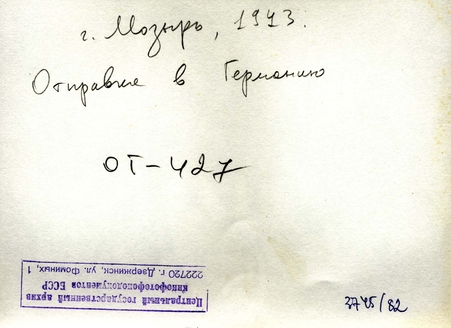 г. Мозырь, 1943.
Отправка в Германию
ОТ-427
Центральный государственный архив
кинофотофонодокументов БССР
222720 г. Дзержинск, ул. Фоминых, 1
3745/82